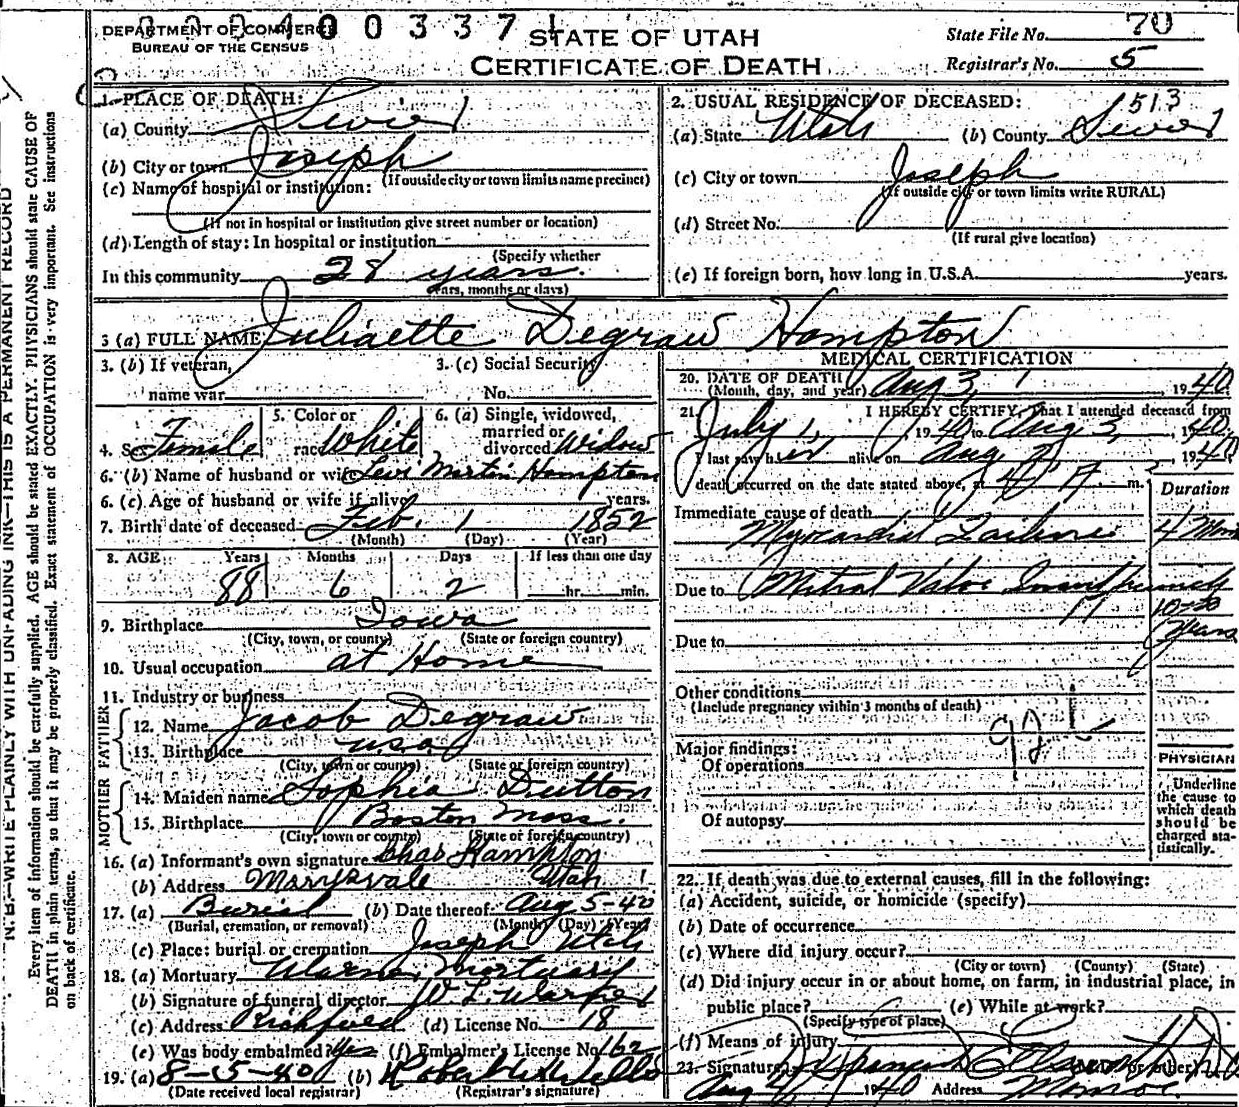 DEPARTMENT OF COMMERCE
BUREAU OF THE CENSUS
0 0 3 3 7 1
STATE OF UTAH
CERTIFICATE OF DEATH
State File No. 70
Registrar's No. 5
1. PLACE OF DEATH:
(a) County Sevier
(b) City or town Joseph
(If outside city or town limits name precinct)
(c) Name of hospital or institution:
(If not in hospital or institution give street number or location)
(d) Length of stay: In hospital or institution
(Specify whether
In this community 28 years.
years, months or days)
2. USUAL RESIDENCE OF DECEASED:
513
(a) State Utah (b) County Sevier
(c) City or town Joseph
(If outside city or town limits write RURAL)
(d) Street No.
(If rural give location)
(e) If foreign born, how long in U.S.A. years.
3 (a) FULL NAME Juliaette Degraw Hampton
3. (b) If veteran,
name war
3. (c) Social Security
No.
4. Sex Female
5. Color or
race White
6. (a) Single, widowed,
married or
divorced Widow
6. (b) Name of husband or wife Levi Martin Hampton
6. (c) Age of husband or wife if alive years.
7. Birth date of deceased Feb. 1 1852
(Month) (Day) (Year)
8. AGE Years Months Days If less than one day
88 6 2 hr. min.
9. Birthplace Iowa
(City, town, or county) (State or foreign country)
10. Usual occupation at Home
11. Industry or business
FATHER
12. Name Jacob Degraw
13. Birthplace U.S.A
(City, town or county) (State or foreign country)
MOTHER
14. Maiden name Sophia Dutton
15. Birthplace Boston Mass.
(City, town or county) (State or foreign country)
16. (a) Informant's own signature Chas Hampton
(b) Address Marysvale Utah
17. (a) Burial (b) Date thereof Aug 5-40
(Burial, cremation, or removal) (Month) (Day) (Year)
(c) Place: burial or cremation Joseph Utah
18. (a) Mortuary Warner Mortuary
(b) Signature of funeral director W. L. Warner
(c) Address Richfield (d) License No. 18
(e) Was body embalmed? Yes (f) Embalmer's License No. 162
19. (a) 8-5-40 (b)
(Date received local registrar) (Registrar's signature)
MEDICAL CERTIFICATION
20. DATE OF DEATH
(Month, day, and year) Aug 3, 1940
21. I HEREBY CERTIFY, That I attended deceased from
July 1, 1940 to Aug 3, 1940
I last saw her alive on Aug 2, 1940
death occurred on the date stated above, at 4 A. m.
Duration
Immediate cause of death
Myocardial Failure 4 Mon
Due to Mitral Valve
10-20
Years
Due to
Other conditions
(Include pregnancy within 3 months of death)
Major findings:
Of operations
Of autopsy
PHYSICIAN
Underline
the cause to
which death
should be
charged sta-
tistically.
22. If death was due to external causes, fill in the following:
(a) Accident, suicide, or homicide (specify)
(b) Date of occurrence
(c) Where did injury occur?
(City or town) (County) (State)
(d) Did injury occur in or about home, on farm, in industrial place, in
public place? (e) While at work?
(Specify type of place)
(f) Means of injury
23. Signature
1940 Address Monroe
N.B.—WRITE PLAINLY WITH UNFADING INK—THIS IS A PERMANENT RECORD
Every item of information should be carefully supplied. AGE should be stated EXACTLY. PHYSICIANS should state CAUSE OF
DEATH in plain terms, so that it may be properly classified. Exact statement of OCCUPATION is very important. See instructions
on back of certificate.